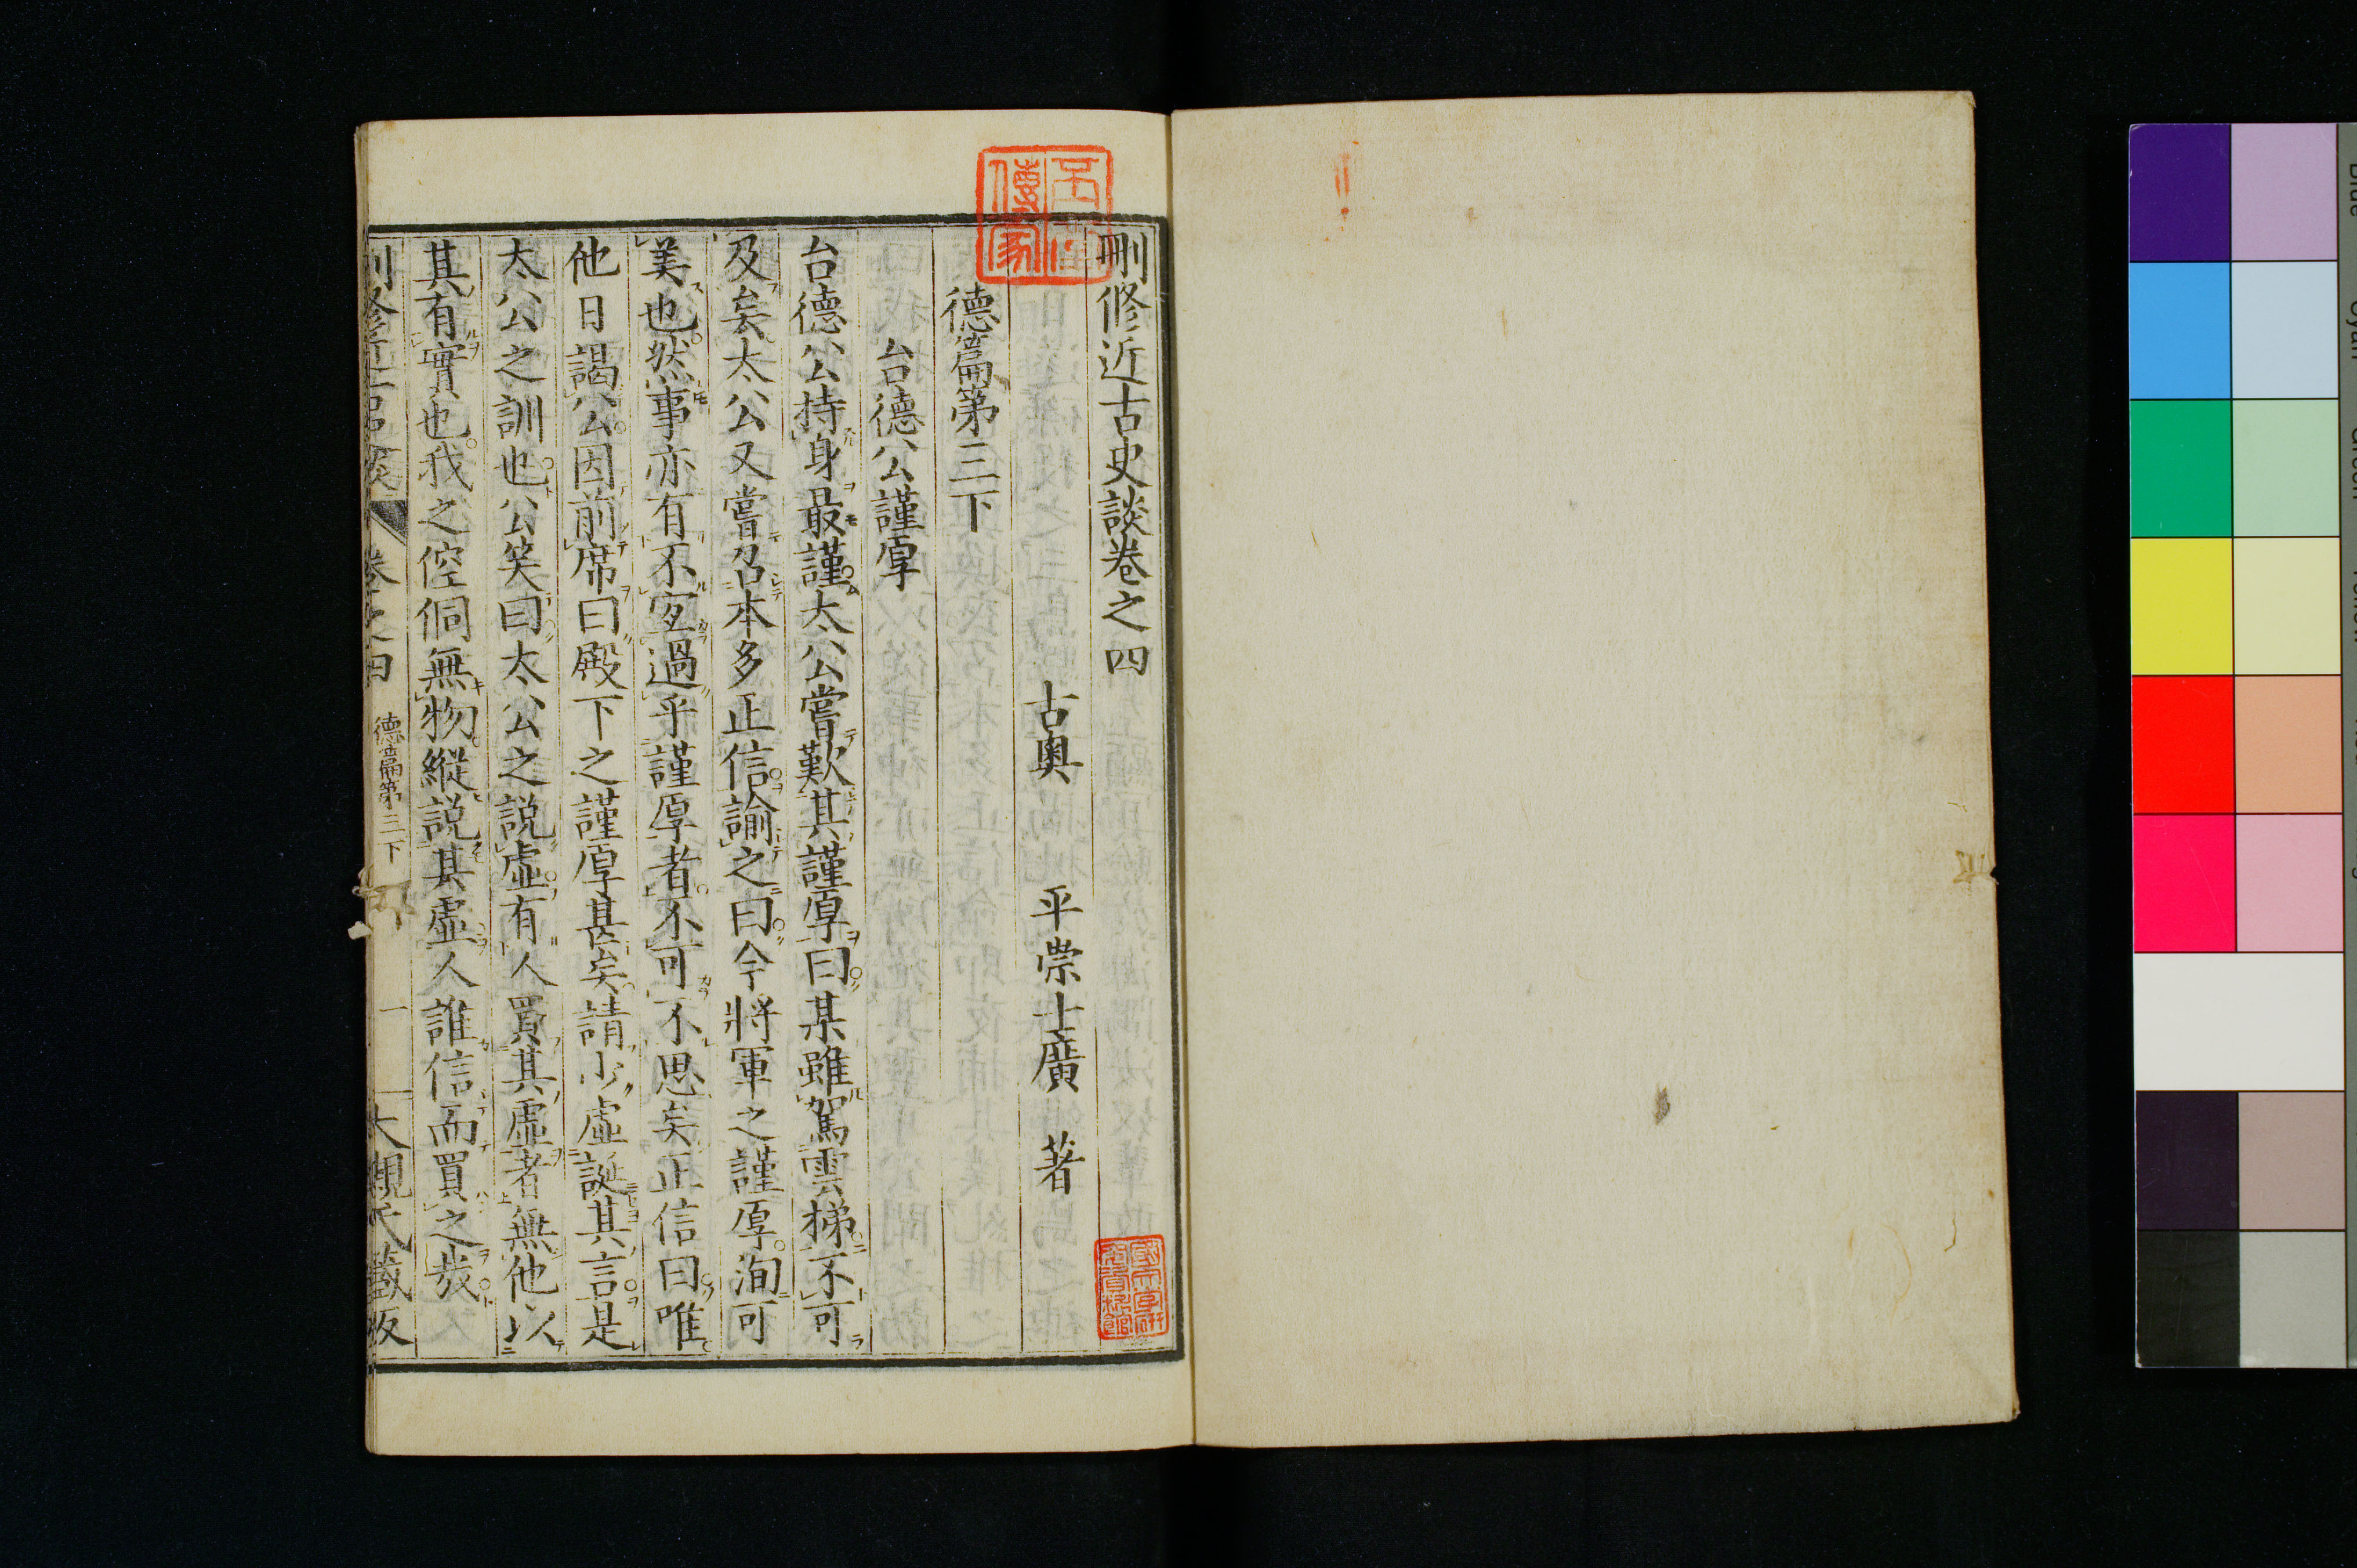 刪修近古史談卷之四
古奧 平崇士廣 著
德篇第三下
台德公謹厚
台德公持身最謹太公嘗歎其謹厚曰某雖駕雲梯不可
及矣太公又嘗召本多正信諭之曰今將軍之謹厚洵可
美也然事亦有不宜過乎謹厚者不可不思矣正信曰唯
他日謁公因前席曰殿下之謹厚甚矣請少虛誕其言是
太公之訓也公笑曰太公之說虛有人買其虛者無他以
其有實也我之倥侗無物縱說其虛人誰信而買之哉
刪修近古史談 卷之四 德篇第三下 一 大槻氏藏版